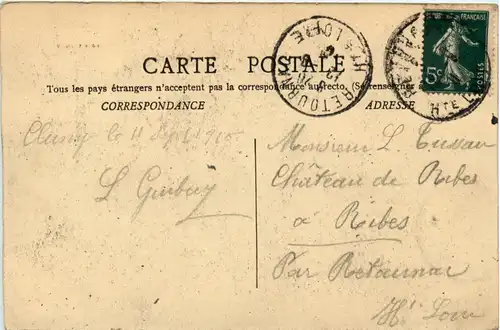 CARTE POSTALE
Tous les pays étrangers n'acceptent pas la correspondance au recto. (Se renseigner
CORRESPONDANCE
ADRESSE
RETOURNA
Hte LOIRE
FRANÇAISE
5c
POSTES
Hte L
le 11 Sept 1910
L
Monsieur L. Tussau
Château de Ribes
à Ribes
Par Retournac
Hte Loire